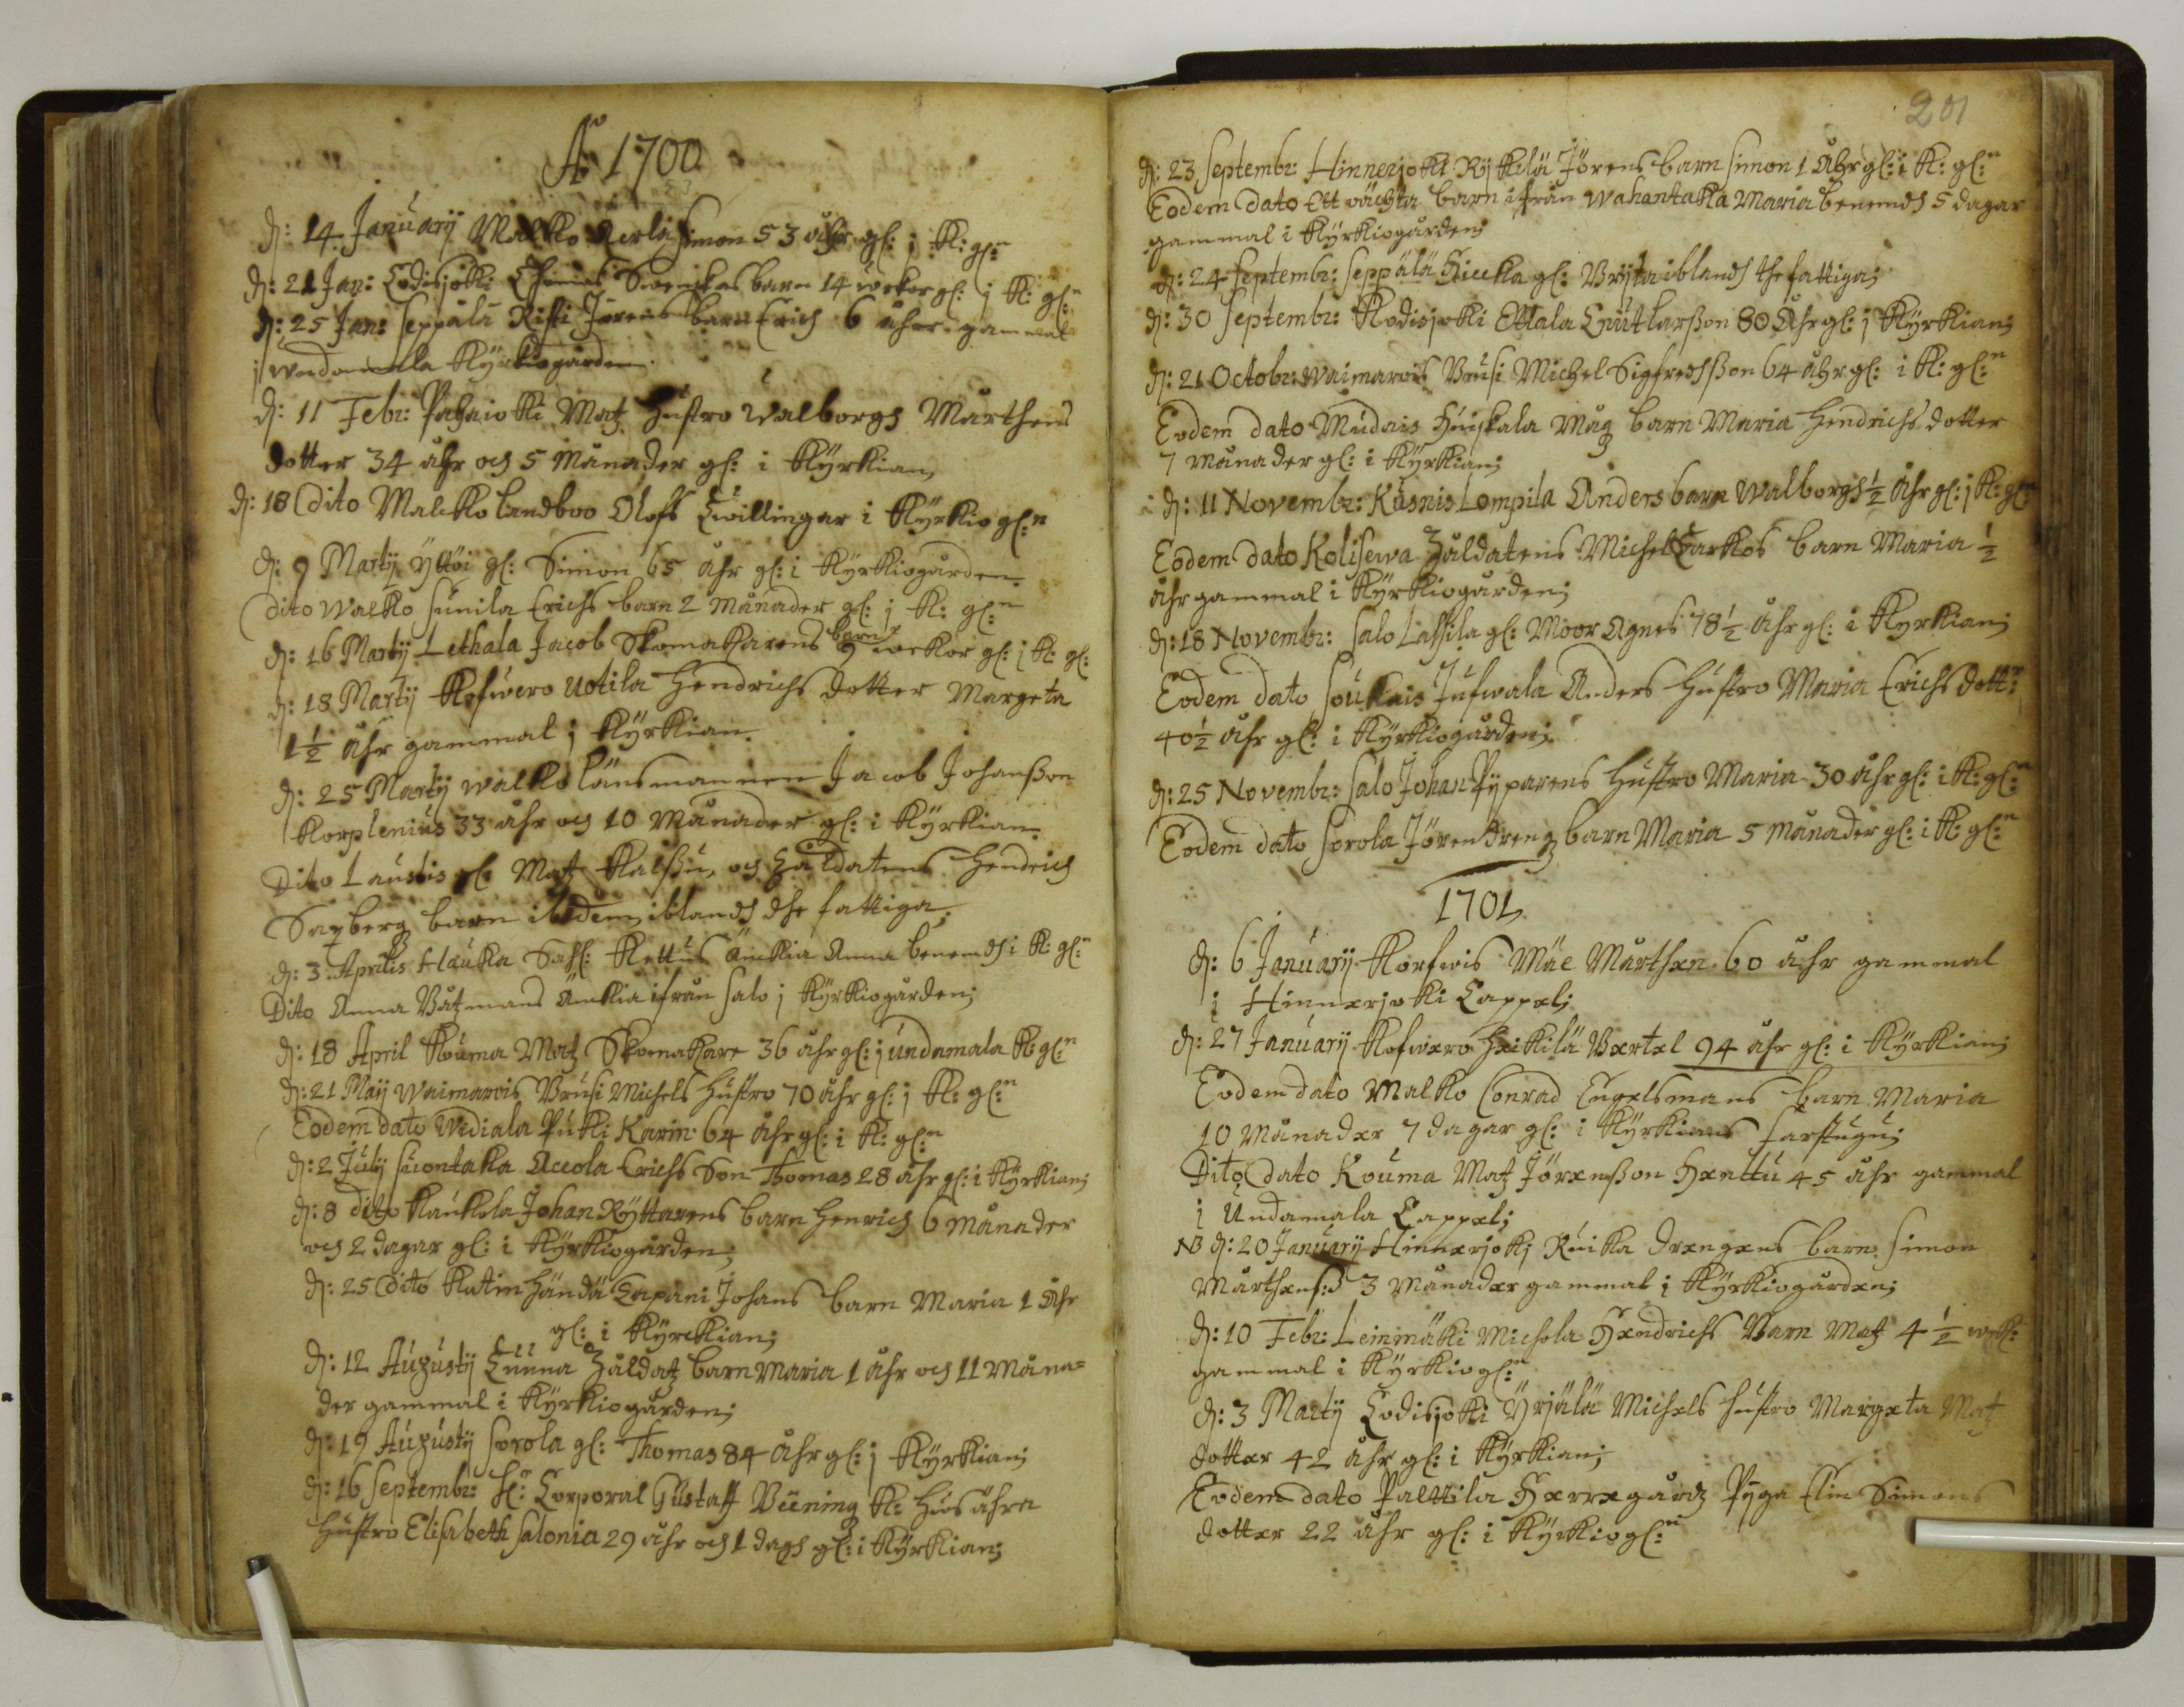 Aº 1700
d: 14 Januarij Malko Acola Simon 53 åhr gl: i K: gln
d: 21 Jan: Lodisjoki Thomas Swenskas barn 14 wekor gl: i K: gln
d: 25 Jan: Seppälä Risti Jörens barn Erich 6 åhr gammal
i undamala Kyrkiogården.
d: 11 Febr: Pahaioki Matz hustro Walborgh Mårthens
dotter 34 åhr och 5 månader gl: i Kyrkian
d: 18 Dito Malko landboo Olofs Twillingar i Kyrkiogl:n
d: 9 Martij Yttöi gl: Simon 65 åhr gl: i Kyrkiogården
Dito Walko Sunila Erichs barn 2 månader gl: i K: gl:n
d: 16 Martij Lethala Jacob Skomakarens barn 9 wekor gl: i K: gl:
d: 18 Martij Kofwero Uotila Hendrichs dotter Margeta
1½ åhr gammal i Kyrkian
d: 25 Martij Walko länsmannen Jacob Johanßon
Korplenius 33 åhr och 10 månader gl: i Kyrkian
Dito Laustis gl: Matz Kalßu, och Zåldatens Hendrich
barn ibidem iblandh dhe fattiga
d: 3 Aprilis Hauka Sahl: Kettus änckia Anna benemdh i K: gl:n
Dito Anna Båtzmans änckia ifrån Salo i Kyrkiogården;
d: 18 April Kouma Matz Skomakare 36 åhr gl: i undamala K: gl:n
d: 21 Maij Waimarois Brusi Michels hustro 70 åhr gl: i K: gl:n
Eodem dato Widiala Pukki Karin 64 åhr gl: i K: gl:n
d: 2 July Suontaka Accola Erichs Son Thomas 28 åhr gl: i Kyrkian;
d: 8 dito Kaukola Johan Ryttarens barn Henrich 6 månader
och 2 dagar gl: i Kyrkiogården;
d: 25 dito Katin händä Tapani Johans barn Maria 1 åhr
gl: i Kyrckian;
d: 12 Augusty Zåldatz barn Maria 1 åhr och 11 Måna=
der gammal i Kyrkiogården;
d: 19 Augusty Sorola gl: Thomas 84 åhr gl: i Kyrkian;
d: 16 Septembr: Hl: Corporal Gustaff K: hus åhra
hustro Elisabeth Salonia 29 åhr och 1 dagh gl: i Kyrkian;
201
d: 23 Septembr: Hinnerjoki Ryskilä Jörens barn Simon 1 Åhr gl: i K: gl:n
Eodem dato Ett oächta barn ifrån Wahantaka Maria benemdh 5 dagar
gammal i Kyrkiogården;
d: 24 Septembr: Seppälä gl: Brijta iblandh the fattiga;
d: 30 Septembr: Kodisjoki Ettala Knut Larßon 80 Åhr gl: i Kyrkian;
d: 21 Octobr: Waimarois Brusi Michel Sigfredhßon 64 åhr gl: i K: gl:n
Eodem dato Mudais Huiskala Mågz barn Maria Hendrichs dotter
7 månader gl: i Kyrkian;
d: 11 Novembr: Kusnis Lompila Anders barn Walborgh ½ åhr gl: i K: gl:n
Eodem dato Kolisewa Zåldatens Michel Tarkos barn Maria ½
åhr gammal i Kyrkiogården;
d: 18 Novembr: Salo Lassila gl: Moor Agnes 78½ åhr gl: i Kyrkian;
Eodem dato Soukais Jufwala Anders hustro Maria Erichs dott:r
40½ åhr gl: i Kyrkiogården;
d: 25 Novembr: Salo Johan Pyparens hustro Maria 30 åhr gl: i K: gl:n
Eodem dato Sorola Jören drengz barn Maria 5 månader gl: i K: gl:n
1701
d: 6 Januarij Korfwis Mäe Mårthen 60 åhr gammal
i Hinnerjoki Cappel;
d: 27 Januarij Kofwero Heikilä Bertel 94 åhr gl: i Kyrkian;
Eodem dato Malko Conrad Engelsmans barn Maria
10 Månader 7 dagar gl: i Kyrkians farstugu;
Dito dato Kouma Matz Jörenßon Henttu 45 åhr gammal
i Undamala Cappel;
NB d: 20 Januarij Hinnerjoki Ruika drengens barn Simon
Mårthens:s 3 Månader gammal i Kyrkiogården;
d: 10 Febr: Leinmäki Michola Hendrichs Barn Matz 4½ wek:
gammal i Kyrkiogl:n
d: 3 Martij Codisjoki Yrjälä Michels hustro Margeta Matz
dotter 42 åhr gl: i Kyrkian;
Eodem dato Palttila Herregårdz Pyga Elin Simons
dotter 22 åhr gl: i Kyrkiogl:n